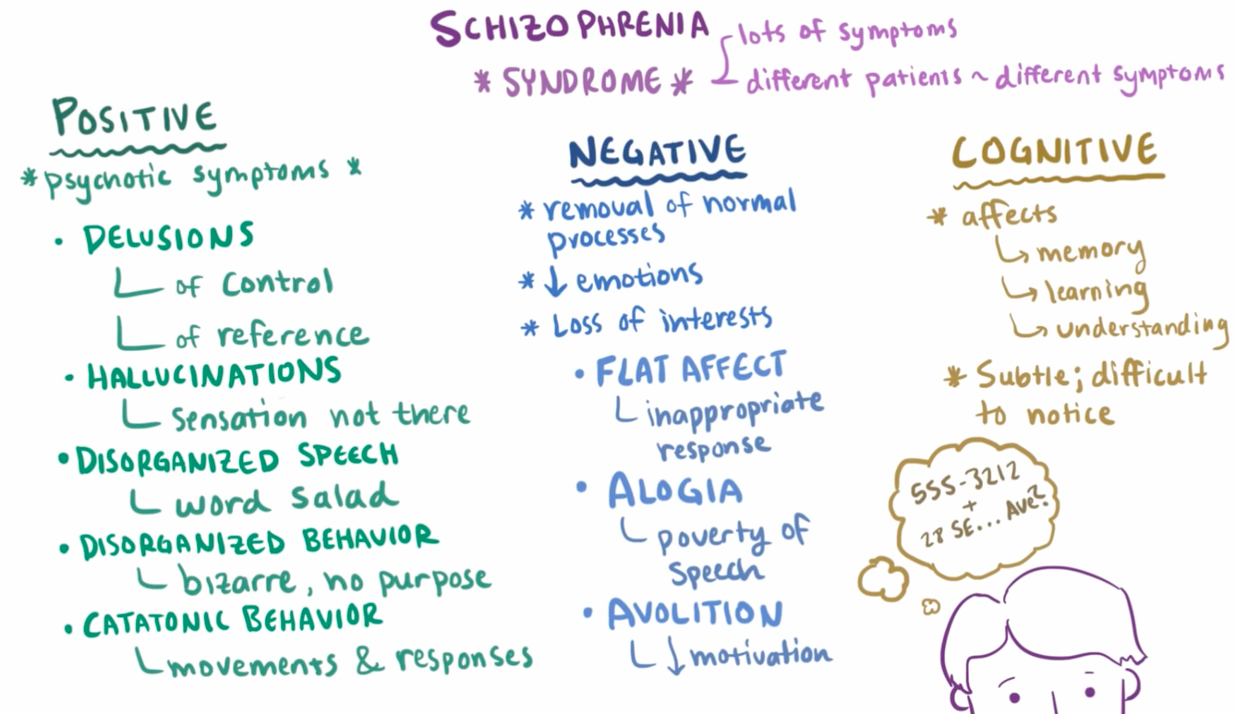 SCHIZOPHRENIA
lots of symptoms
* SYNDROME *
different patients ~ different symptoms
POSITIVE
*psychotic symptoms *
• DELUSIONS
of control
of reference
• HALLUCINATIONS
sensation not there
• DISORGANIZED SPEECH
word salad
• DISORGANIZED BEHAVIOR
bizarre, no purpose
• CATATONIC BEHAVIOR
movements & responses
NEGATIVE
* removal of normal
processes
* ↓ emotions
* Loss of interests
• FLAT AFFECT
inappropriate
response
• ALOGIA
poverty of
speech
• AVOLITION
↓ motivation
COGNITIVE
* affects
↳ memory
↳ learning
↳ understanding
* Subtle; difficult
to notice
555-3212
+
28 SE... Ave?